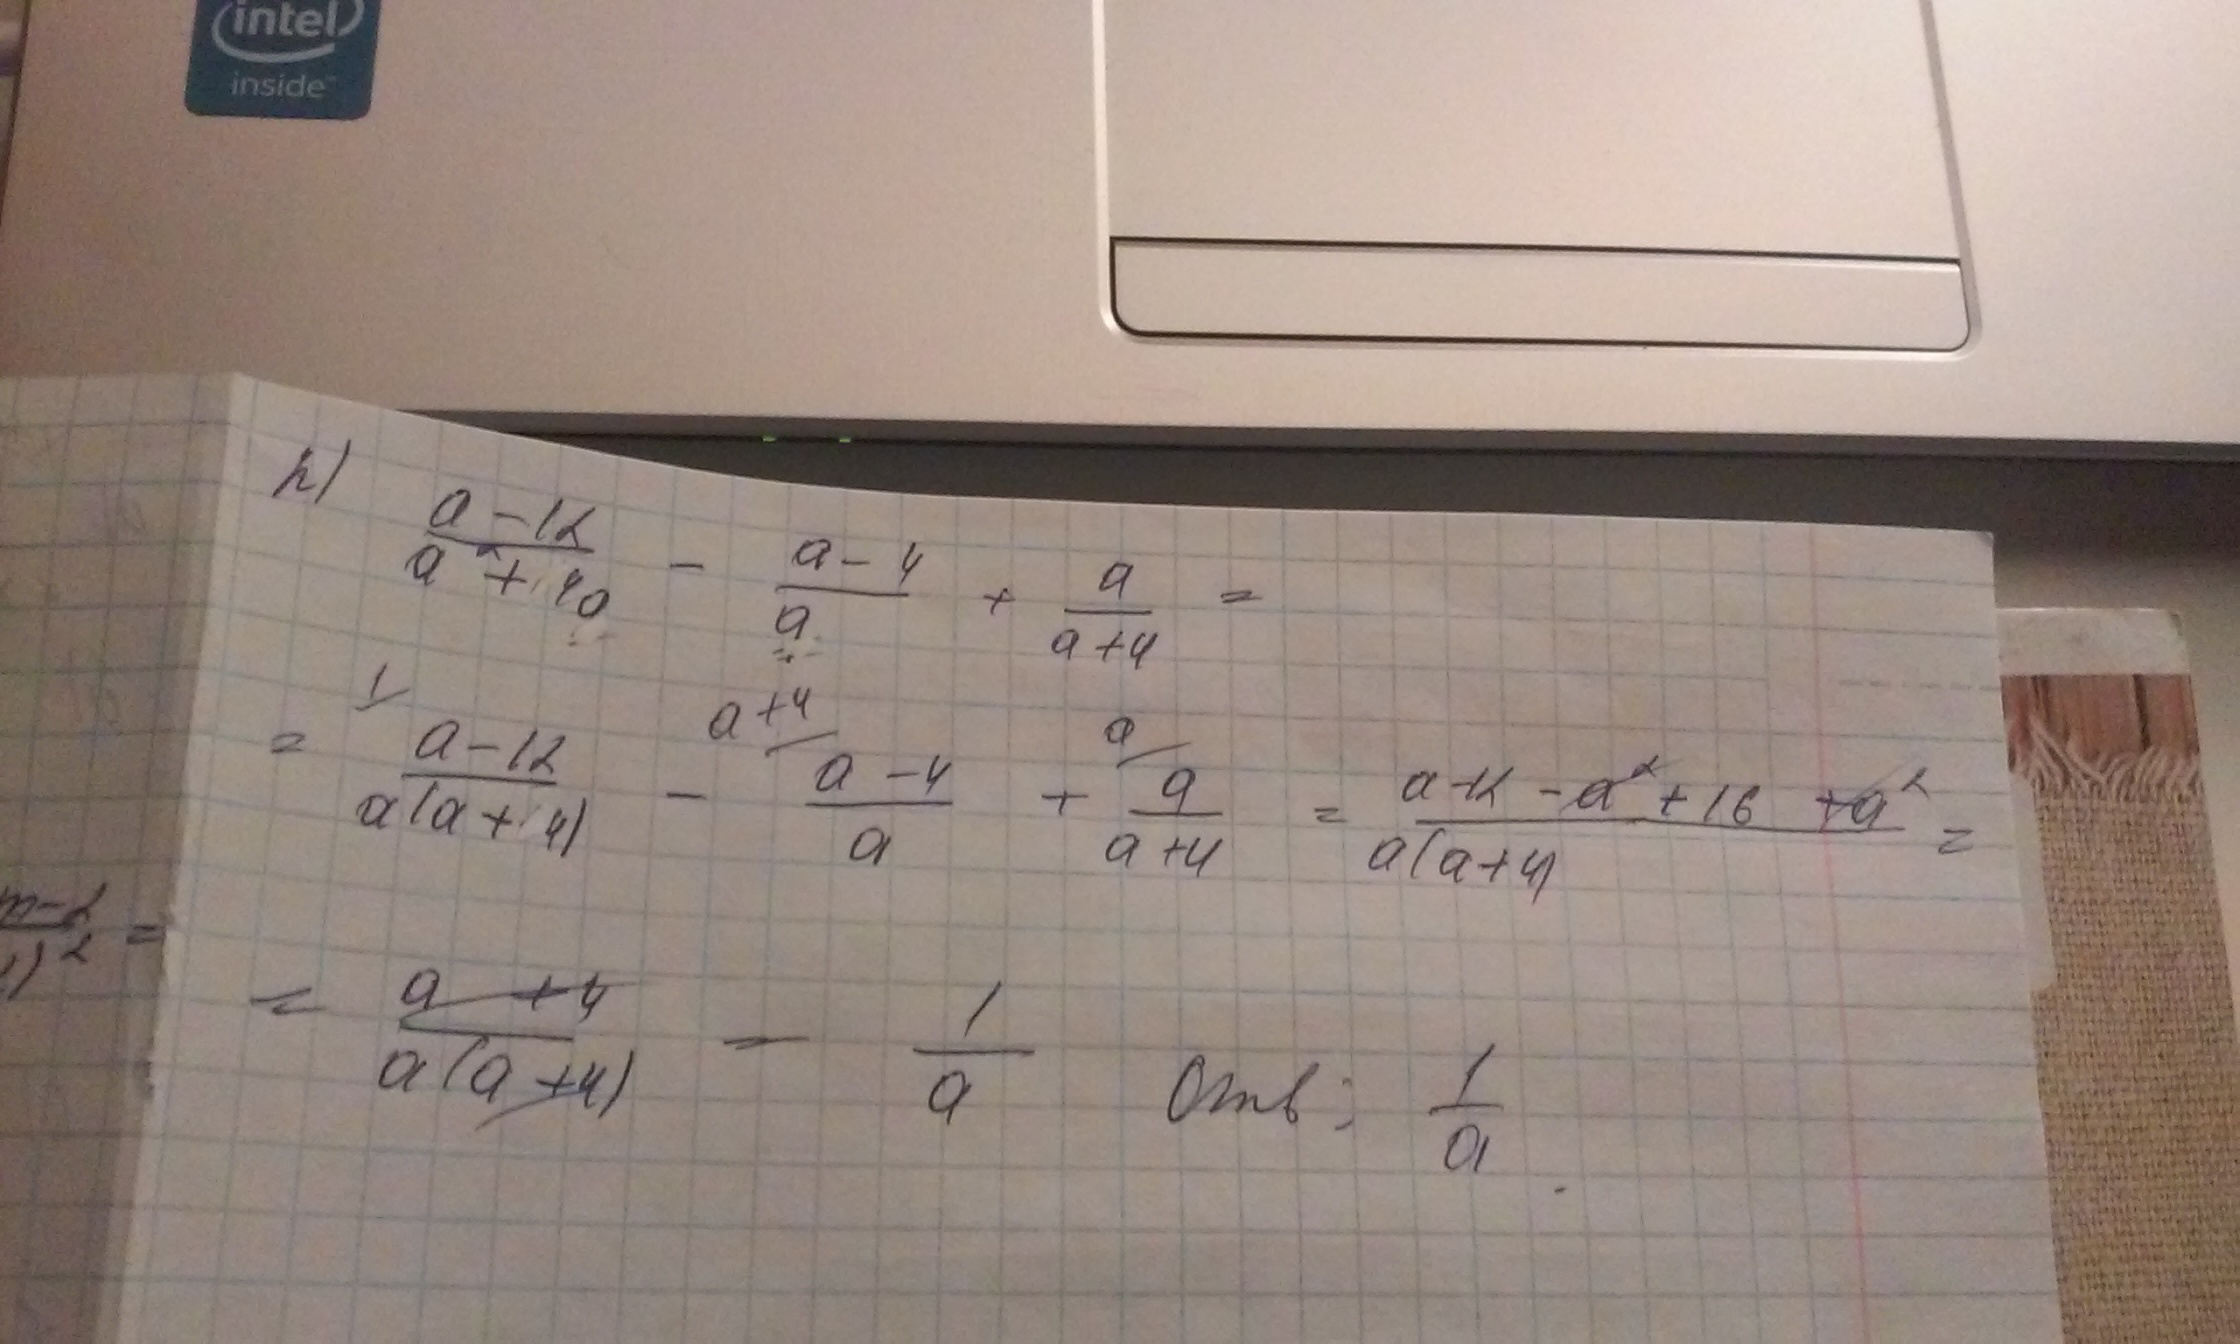 intel
inside™
h)
(a-12)/(a²+4a) - (a-4)/a + a/(a+4) =
= 1/ (a-12)/(a(a+4)) - a+4/ (a-4)/a + a/ a/(a+4) = (a-12-a²+16+a²)/(a(a+4)) =
= (a+4)/(a(a+4)) = 1/a Отв: 1/a.
m-2
1)² =